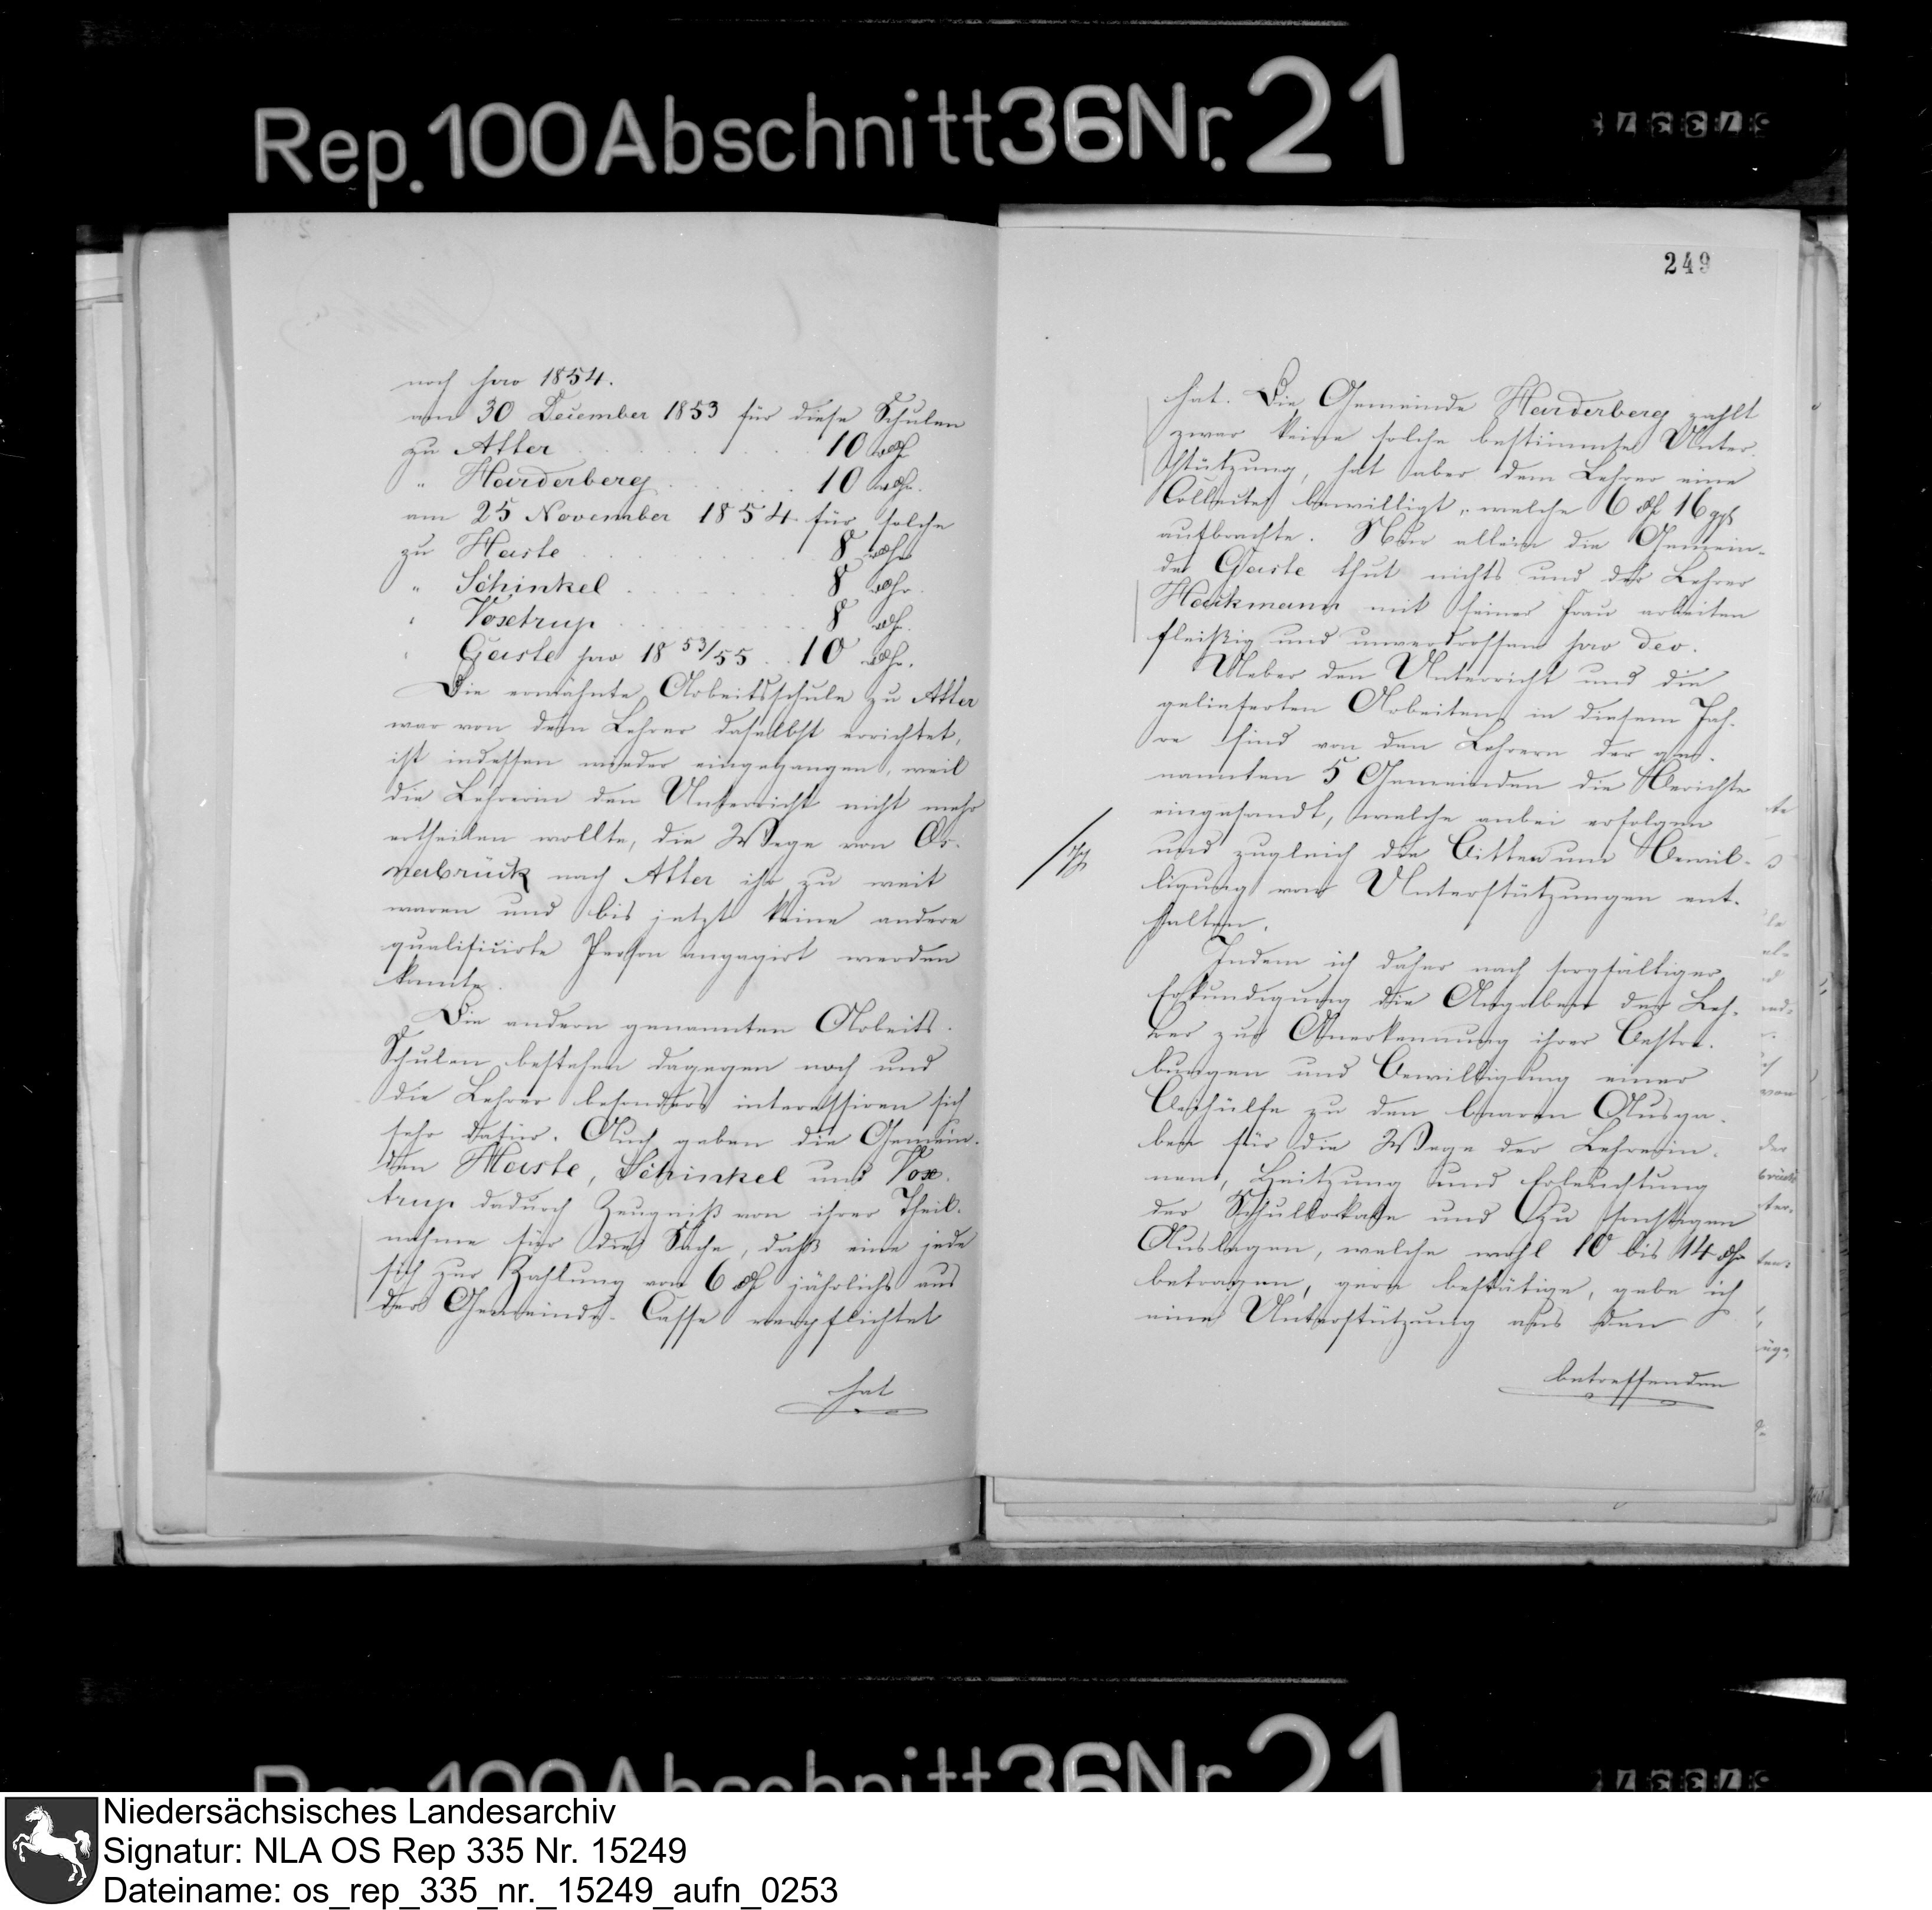 Rep. 100 Abschnitt 36 Nr. 21
noch pro 1854.
am 30 December 1853 für diese Schulen
zu Atter . . . . . . . 10 rthlr
" Harderberg . . . . . 10 rthlr.
am 25 November 1854 für solche
zu Haste . . . . . . . 8 rthlr
" Schinkel . . . . . . . 8 rthlr.
" Voxtrup . . . . . . . 8 rthlr.
" Gaste pro 18 53/55 . . 10 rthlr.
Die erwähnte Arbeitsschule zu Atter
war von dem Lehrer daselbst errichtet,
ist indessen wieder eingegangen, weil
die Lehrerin den Unterricht nicht mehr
ertheilen wollte, die Wege von Os-
nabrück nach Atter ihr zu weit
waren und bis jetzt keine andere
qualificirte Person engagirt werden
konnte.
Die andern genannten Arbeits-
Schulen bestehen dagegen noch und
die Lehrer besonders interessiren sich
sehr dafür. Auch geben die Gemein-
den Haste, Schinkel und Vox-
trup dadurch Zeugniß von ihrer Theil-
nahme für die Sache, daß eine jede
sich zur Zahlung von 6 rthlr jährlichs aus
der Gemeinde-Casse verpflichtet
hat
249
hat. Die Gemeinde Harderberg zahlt
zwar keine solche bestimmte Unter-
stützung, hat aber dem Lehrer eine
Collecte bewilligt, welche 6 rthlr 16 ggr
aufbrachte. Nur allein die Gemein-
de Gaste thut nichts und der Lehrer
Hackmann mit seiner Frau arbeiten
fleißig und unverdrossen pro deo.
Ueber den Unterricht und die
gelieferten Arbeiten in diesem Jah-
re sind von den Lehrern der ge-
nannten 5 Gemeinden die Berichte
eingesandt, welche anbei erfolgen
und zugleich die Bitten um Bewil-
ligung von Unterstützungen ent-
halten.
Indem ich daher nach sorgfältiger
Erkundigung die Angaben der Leh-
rer zur Anerkennung ihrer Bestre-
bungen und Bewilligung einer
Beihülfe zu den baaren Ausga-
ben für die Wege der Lehrerin-
nen, Heitzung und Erleuchtung
der Schullokale und zu sonstigen
Auslagen, welche wohl 10 bis 14 rthlr
betragen, gern bestätige, gebe ich
eine Unterstützung aus den
betreffenden
Niedersächsisches Landesarchiv
Signatur: NLA OS Rep 335 Nr. 15249
Dateiname: os_rep_335_nr._15249_aufn_0253